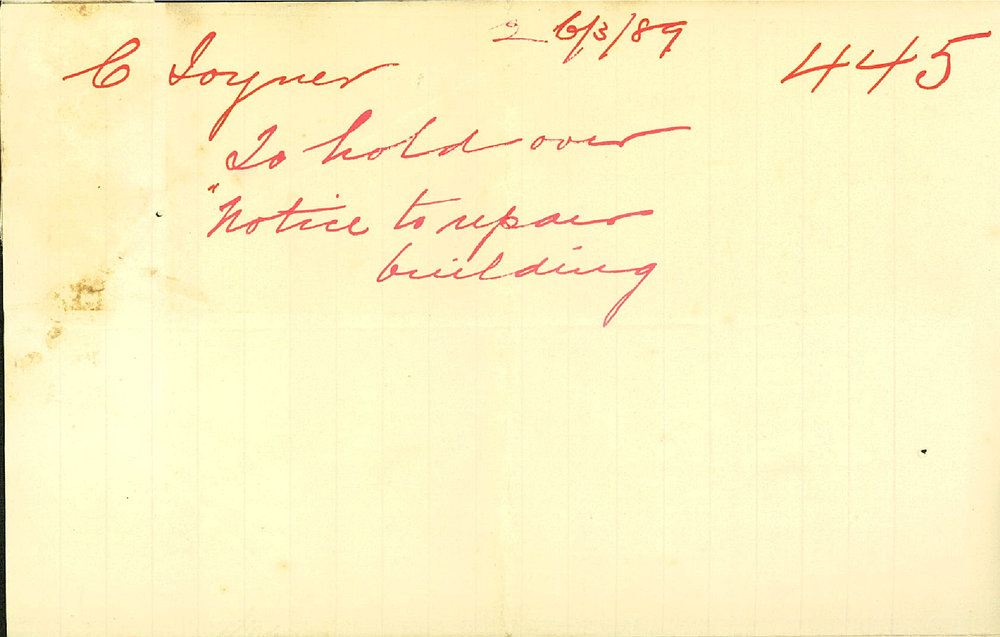 26/3/89
445
C Joyner
To hold over
"Notice to repair
building